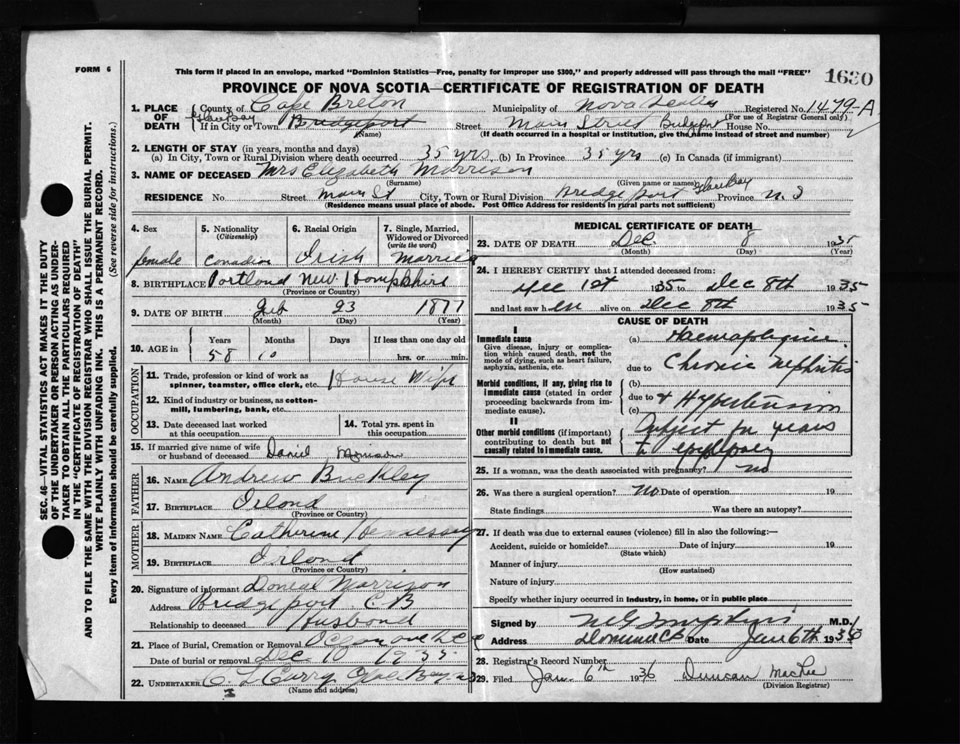 FORM 6
This form if placed in an envelope, marked "Dominion Statistics—Free, penalty for improper use $300," and properly addressed will pass through the mail "FREE"
1630
PROVINCE OF NOVA SCOTIA—CERTIFICATE OF REGISTRATION OF DEATH
1. PLACE OF DEATH
County of Cape Breton Municipality of Nova Scotia Registered No. 1479-A
(For use of Registrar General only)
Glace Bay
If in City or Town Bridgeport Street Main Street Bridgeport House No.
(Name) (If death occurred in a hospital or institution, give the name instead of street and number)
2. LENGTH OF STAY (in years, months and days)
(a) In City, Town or Rural Division where death occurred 35 yrs (b) In Province 35 yrs (c) In Canada (if immigrant)
3. NAME OF DECEASED Mrs Elizabeth Morrison
(Surname) (Given name or names)
RESIDENCE No. Street Main St City, Town or Rural Division Bridgeport Glace Bay Province N.S
(Residence means usual place of abode. Post Office Address for residents in rural parts not sufficient)
4. Sex female
5. Nationality (Citizenship) Canadian
6. Racial Origin Irish
7. Single, Married, Widowed or Divorced (write the word) Married
8. BIRTHPLACE Portland New Hampshire
(Province or Country)
9. DATE OF BIRTH Feb 23 1877
(Month) (Day) (Year)
10. AGE in Years Months Days If less than one day
58 10 hrs. or min.
OCCUPATION
11. Trade, profession or kind of work as spinner, teamster, office clerk, etc. House Wife
12. Kind of industry or business, as cotton-mill, lumbering, bank, etc.
13. Date deceased last worked at this occupation
14. Total yrs. spent in this occupation
15. If married give name of wife or husband of deceased Daniel Morrison
FATHER
16. NAME Andrew Buckley
17. BIRTHPLACE Irland
(Province or Country)
MOTHER
18. MAIDEN NAME Catherine Hennessey
19. BIRTHPLACE Irland
(Province or Country)
20. Signature of informant Daniel Morrison
Address Bridgeport C.B
Relationship to deceased Husband
21. Place of Burial, Cremation or Removal
Date of burial or removal Dec 10 1935
22. UNDERTAKER Curry Glace Bay
(Name and address)
MEDICAL CERTIFICATE OF DEATH
23. DATE OF DEATH Dec. 8 1935
(Month) (Day) (Year)
24. I HEREBY CERTIFY that I attended deceased from:
Dec 1st 1935 to Dec 8th 1935
and last saw her alive on Dec 8th 1935
CAUSE OF DEATH
I
Immediate cause
Give disease, injury or complication which caused death, not the mode of dying, such as heart failure, asphyxia, asthenia, etc.
(a)
due to Chronic Nephritis
Morbid conditions, if any, giving rise to immediate cause (stated in order proceeding backwards from immediate cause).
(b)
due to & Hypertension
(c)
II
Other morbid conditions (if important) contributing to death but not causally related to immediate cause.
Subject for years
to epilepsy
25. If a woman, was the death associated with pregnancy? no
26. Was there a surgical operation? No. Date of operation 19
State findings Was there an autopsy?
27. If death was due to external causes (violence) fill in also the following:—
Accident, suicide or homicide? Date of injury 19
(State which)
Manner of injury
(How sustained)
Nature of injury
Specify whether injury occurred in industry, in home, or in public place
Signed by M G Tompkins M.D.
Address Dominion CB Date Jan 6th 1936
28. Registrar's Record Number
29. Filed Jan. 6th 1936 Duncan MacRae
(Division Registrar)
SEC. 46—VITAL STATISTICS ACT MAKES IT THE DUTY OF THE UNDERTAKER OR PERSON ACTING AS UNDERTAKER TO OBTAIN ALL THE PARTICULARS REQUIRED IN THE "CERTIFICATE OF REGISTRATION OF DEATH"
AND TO FILE THE SAME WITH THE DIVISION REGISTRAR WHO SHALL ISSUE THE BURIAL PERMIT.
WRITE PLAINLY WITH UNFADING INK. THIS IS A PERMANENT RECORD.
Every item of information should be carefully supplied. (See reverse side for instructions.)